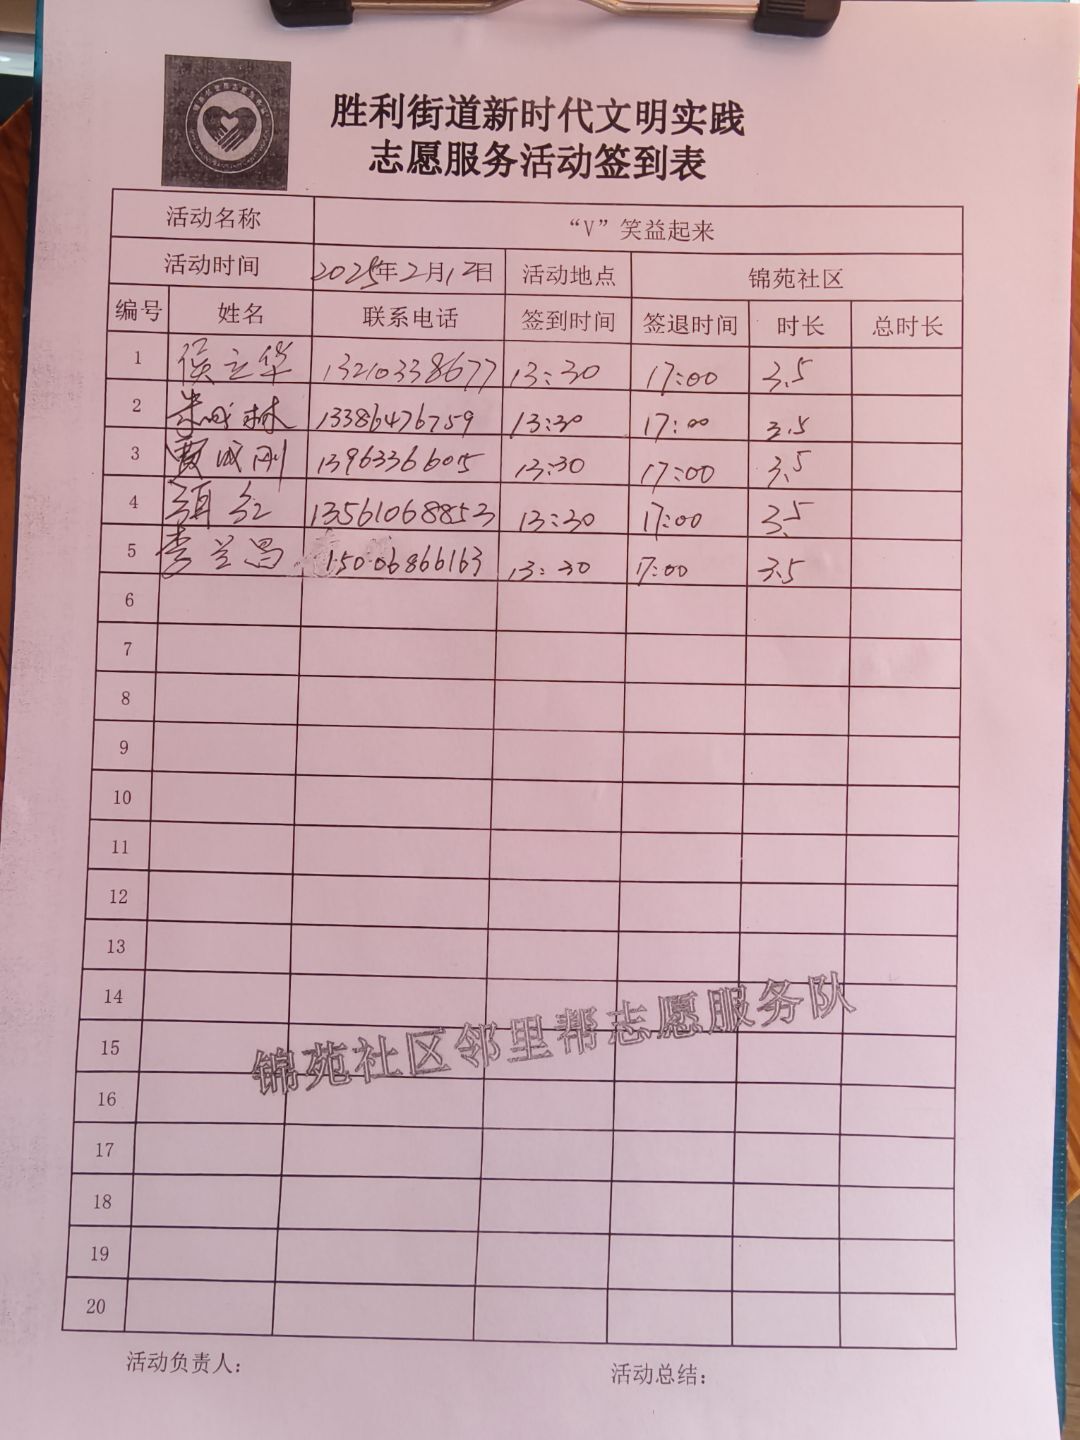 胜利街道新时代文明实践
志愿服务活动签到表
活动名称 “V”笑益起来
活动时间 2025年2月12日 活动地点 锦苑社区
编号 姓名 联系电话 签到时间 签退时间 时长 总时长
1 侯立华 13210338677 13:30 17:00 3.5
2 朱成林 13386476759 13:30 17:00 3.5
3 贾成刚 13963366015 13:30 17:00 3.5
4 13561068853 13:30 17:00 3.5
5 李兰昌 15006866163 13:30 17:00 3.5
6
7
8
9
10
11
12
13
14
15
16
17
18
19
20
锦苑社区邻里帮志愿服务队
活动负责人: 活动总结: